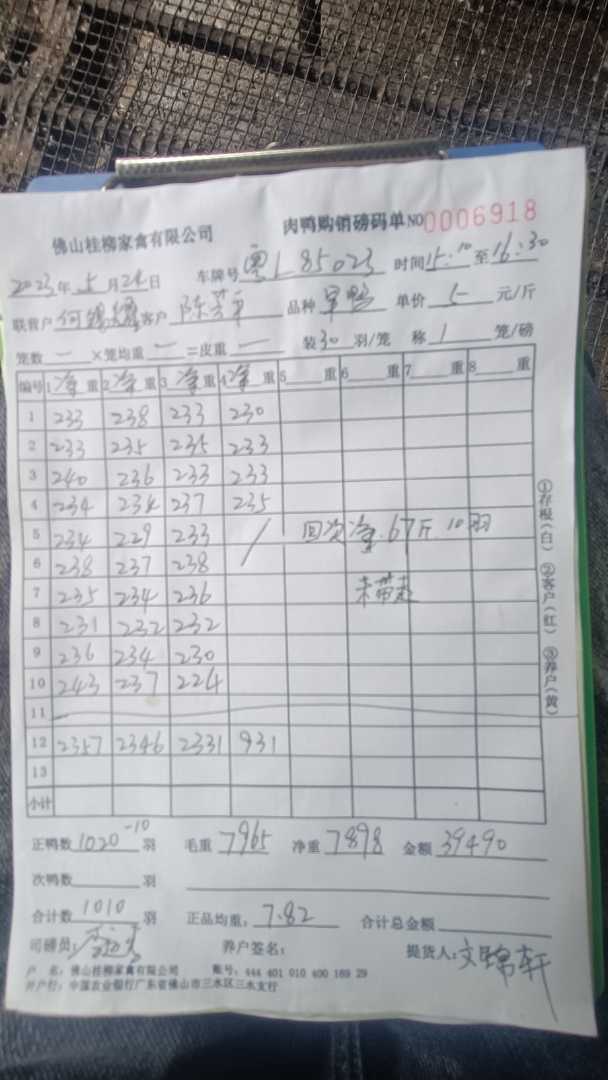 佛山桂柳家禽有限公司 肉鸭购销磅码单 NO 0006918
2023年5月24日 车牌号 粤L85023 时间 15:10 至 16:30
联营户 何 客户 陈 品种 旱鸭 单价 5 元/斤
笼数 一 ×笼均重 一 =皮重 一 装 30 羽/笼 称 1 笼/磅
编号 1 净 重 2 净 重 3 净 重 4 净 重 5 重 6 重 7 重 8 重
1 233 238 233 230
2 233 235 235 233
3 240 236 233 233
4 234 234 237 235
5 234 229 233 / 回次净 67斤 10羽
6 238 237 238
7 235 234 236 未带走
8 231 232 232
9 236 234 230
10 243 237 224
11
12 2357 2346 2331 931
13
小计
正鸭数 1020 -10 羽 毛重 7965 净重 7898 金额 39490
次鸭数 羽
合计数 1010 羽 正品均重: 7.82 合计总金额
司磅员: 养户签名: 提货人: 文锦轩
户 名: 佛山桂柳家禽有限公司 账号: 444 401 010 400 169 29
开户行: 中国农业银行广东省佛山市三水区三水支行
①存根(白) ②客户(红) ③养户(黄)